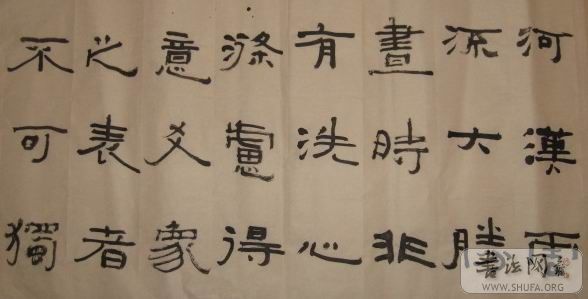 河漢西
流大勝
晝時非
有洗心
滌慮得
意爻象
之表者
不可獨
书法网
WWW.SHUFA.ORG